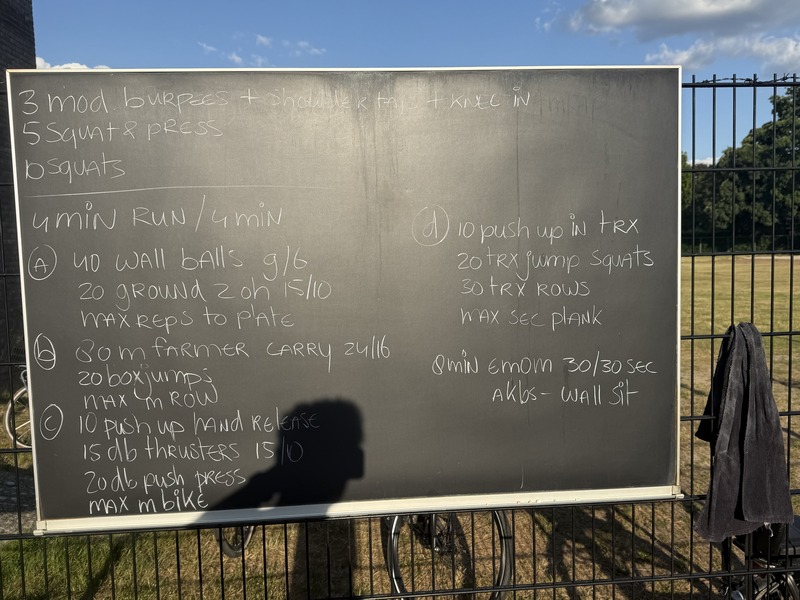 3 mod. burpees + shoulder tap + knee in
5 squat & press
10 squats
4 min Run / 4 min
A 40 wall balls 9/6
20 ground 2 oh 15/10
max reps to plate
b 80 m farmer carry 24/16
20 box jumps
max m Row
c 10 push up hand release
15 db thrusters 15/10
20 db push press
max m bike
d 10 push up in trx
20 trx jump squats
30 trx rows
max sec plank
8 min emom 30/30 sec
akbs - wall sit